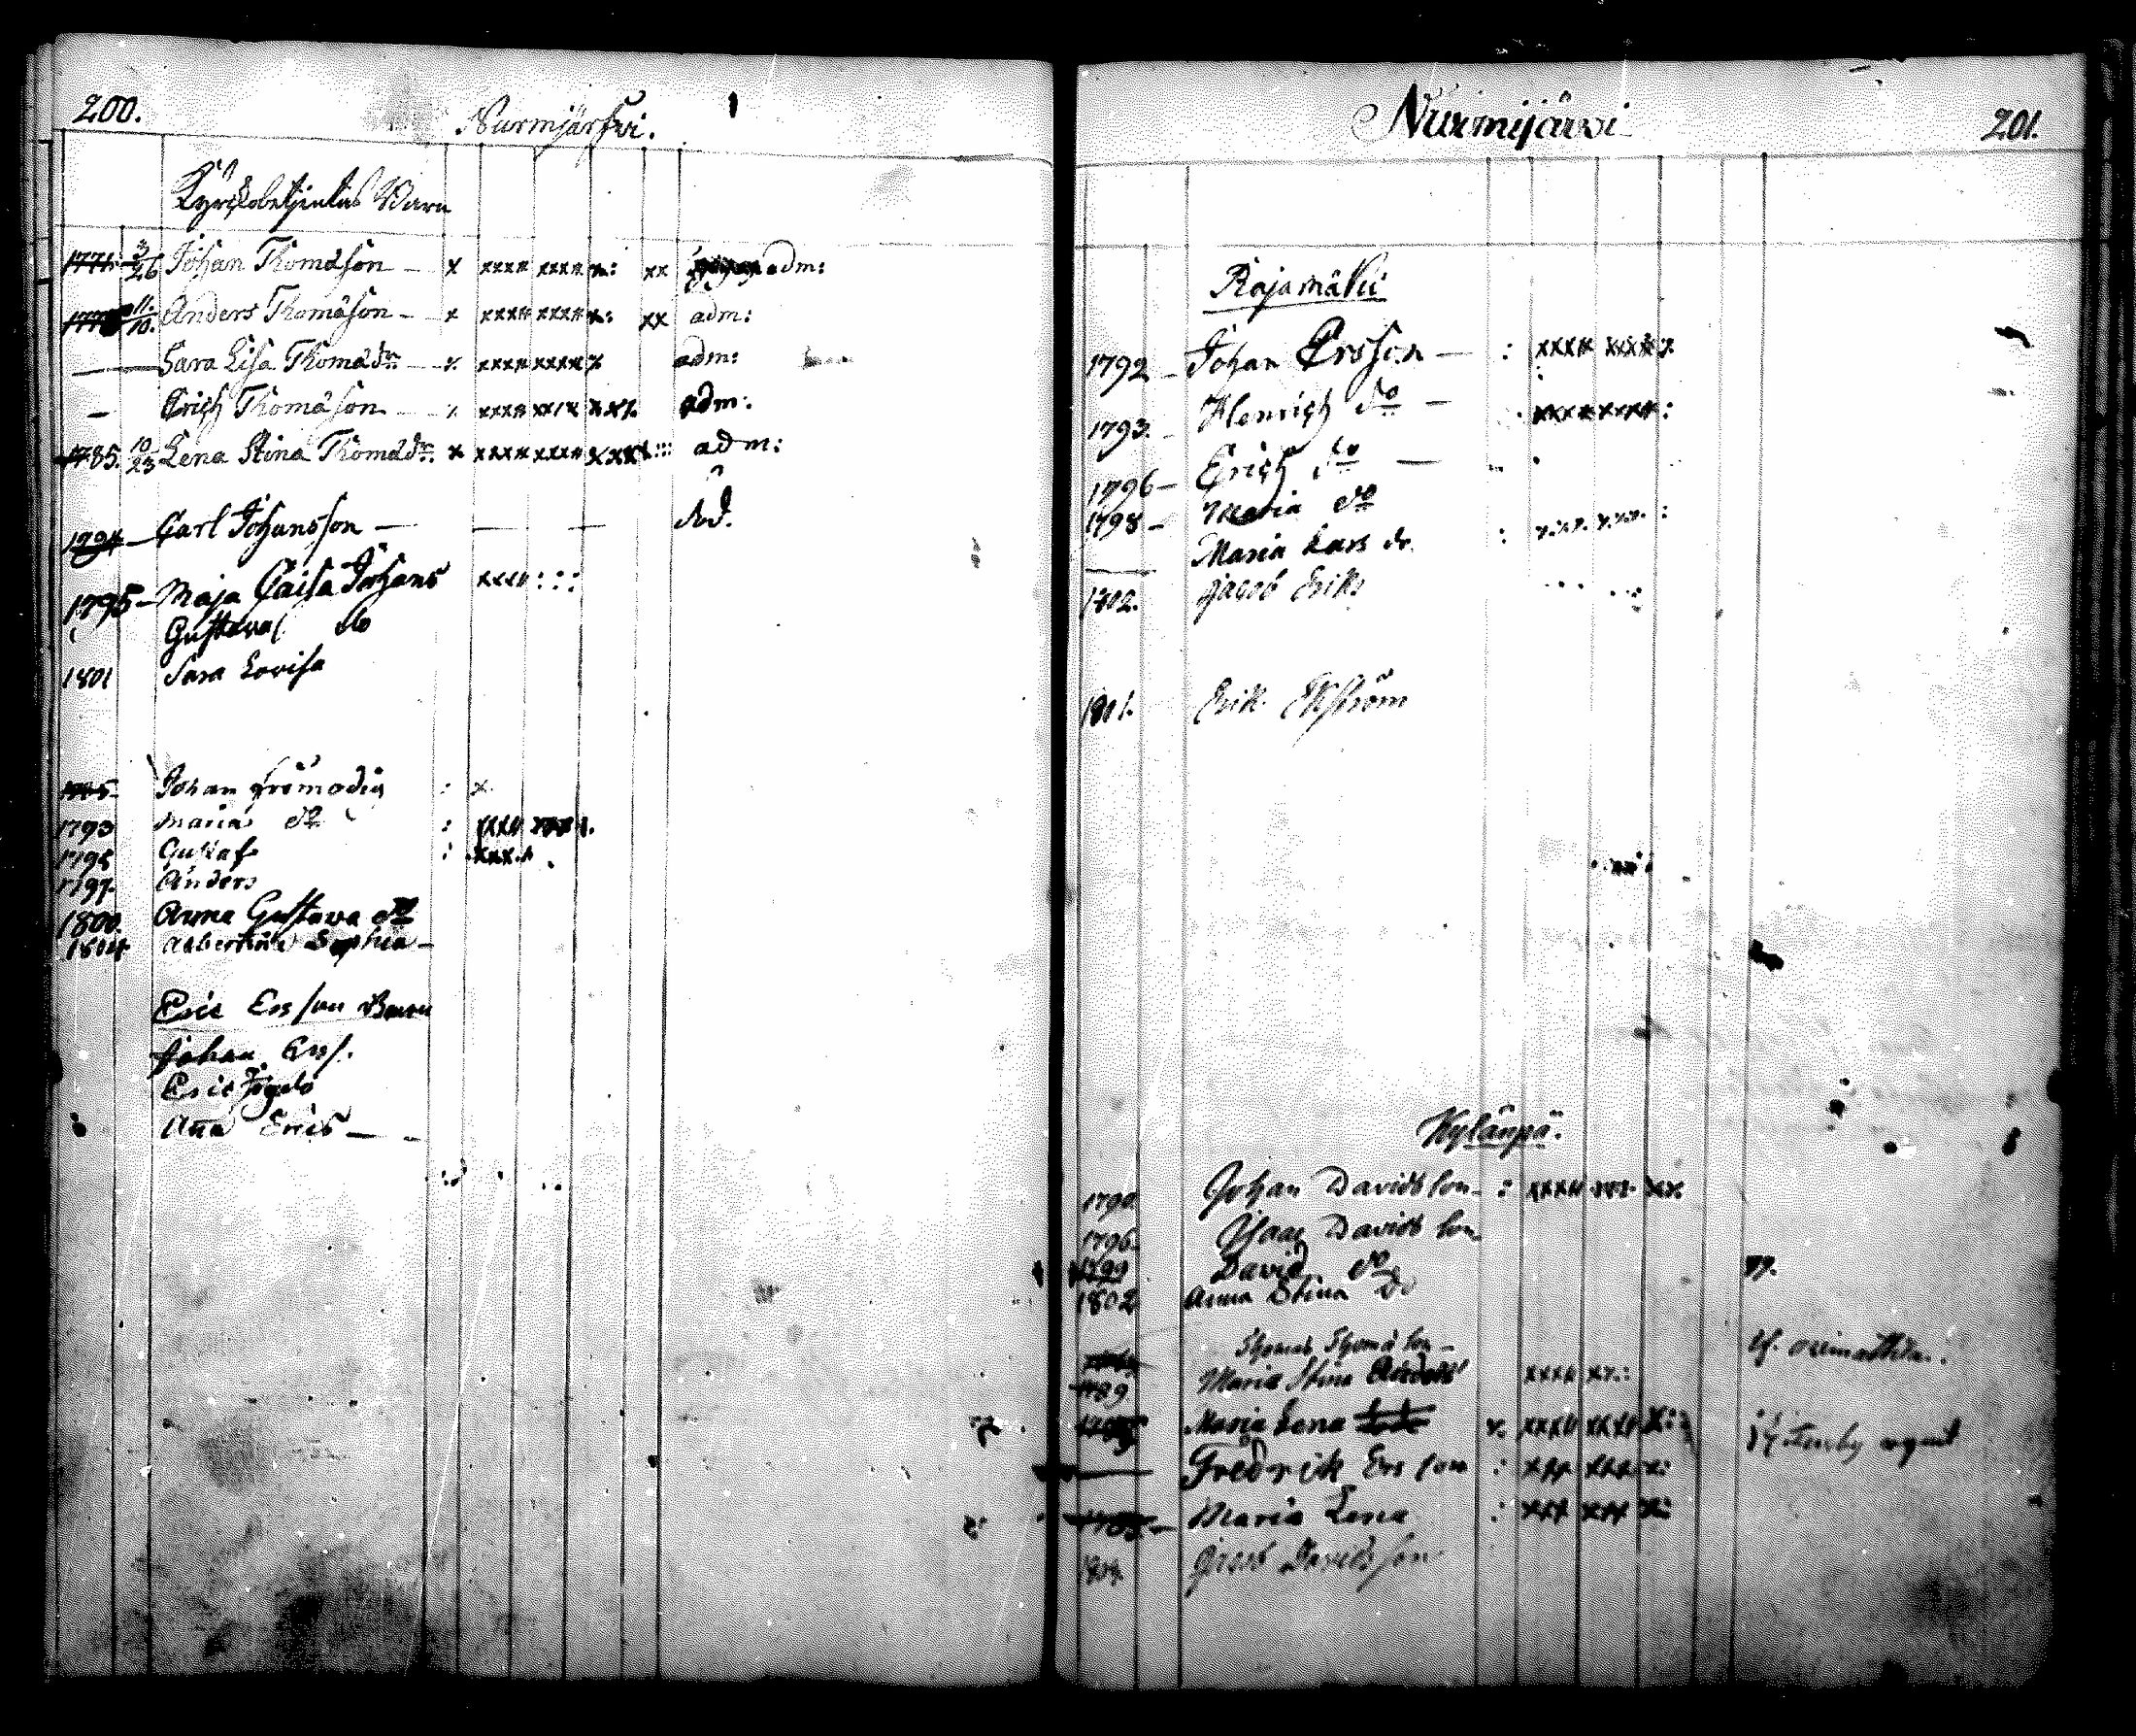 200.
Nurmjärfvi.
Kyrckobetjentas Barn
1771. 3/26 Johan Thomäson — x xxxx xxxx x: xx adm:
11/10. Anders Thomäson — x xxxx xxxx x: xx adm:
— Sara Lisa Thomädr — x xxxx xxxx x adm:
— Erich Thomäson — x xxxx xxxx xxx adm:
1785. 10/23 Lena Stina Thomädr. x xxxx xxxx xxxx::: adm:
1794 — Carl Johansson — — — död.
1795 — Maja Caisa Johans xxxx ::::
Gustava do
1801 Sara Lovisa
Johan Frimodig : x.
1793 Maria do : xxxx xxxx
1795 Gustaf : xxx
1797. Anders
1800. Anna Gustava do
1804 Albertina Sophia —
Eric Ersson Barn
Johan Erss.
Eric
Anna Erics —
Nurmijärvi
201.
Rajamäki
1792 — Johan Ersson — : xxxx xxxx x
1793. — Henrich do — xxxx xxxx :
1796 — Erich do —
1798 — Maria do
— Maria Lars dr. : x.x.x. x.x.x. :
1802. Jacob Eriks
1801. Erik Ekström
Kylänpä.
1790 Johan Davidsson — : xxxx xxx xx
1796. Isaac Davidsson
1799 David do
1802 Anna Stina Do
Thomas Thomasson —
1789 Maria Stina xxxx xx::
Maria Lena x. xxxx xxxx x:
— Fredrik Ersson : xxx xxxx x:
Maria Lena : xxx xxx x:
Jacob Davidsson